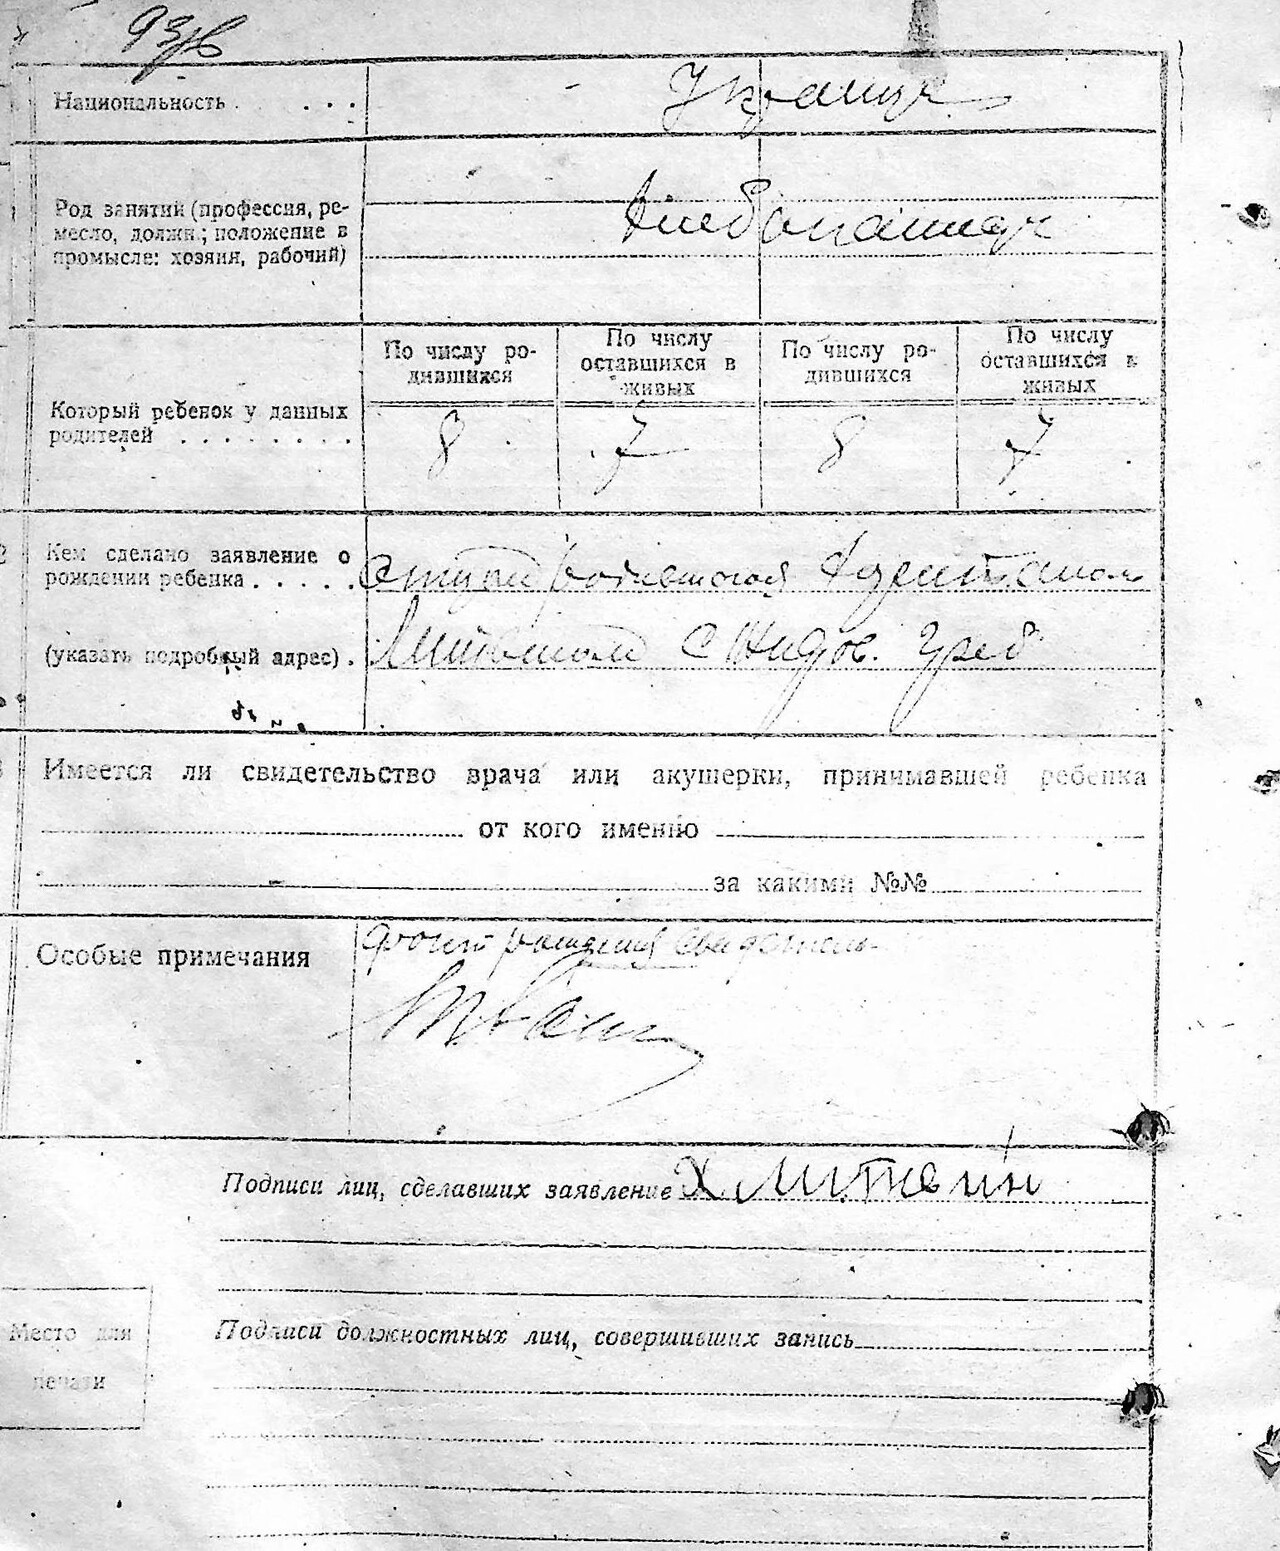 Национальность . . . . .
Украинцы
Род занятий (профессия, ре-
месло, должн.; положение в
промысле: хозяин, рабочий)
Хлебопашцы
Который ребенок у данных
родителей . . . . . . . .
По числу ро-
дившихся
По числу
оставшихся в
живых
По числу ро-
дившихся
По числу
оставшихся в
живых
8 7 8 7
Кем сделано заявление о
рождении ребенка . . . . .
(указать подробный адрес) .
Имеется ли свидетельство врача или акушерки, принимавшей ребенка
от кого именно
за какими №№
Особые примечания
рождения
Подписи лиц, сделавших заявление Х Литвин
Подписи должностных лиц, совершивших запись
Место для
печати